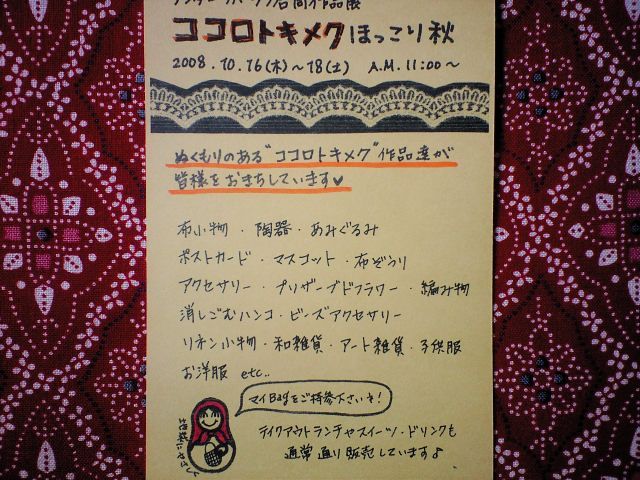 合同作品展
ココロトキメク ほっこり秋
2008.10.16(木)～18(土) A.M.11:00～
ぬくもりのある"ココロトキメク"作品達が
皆様をおまちしています♥
布小物・陶器・あみぐるみ
ポストカード・マスコット・布ぞうり
アクセサリー・プリザーブドフラワー・編み物
消しごむハンコ・ビーズアクセサリー
リネン小物・和雑貨・アート雑貨・子供服
お洋服 etc..
マイBagをご持参下さいネ!
テイクアウトランチやスイーツ・ドリンクも
通常通り販売しています♪